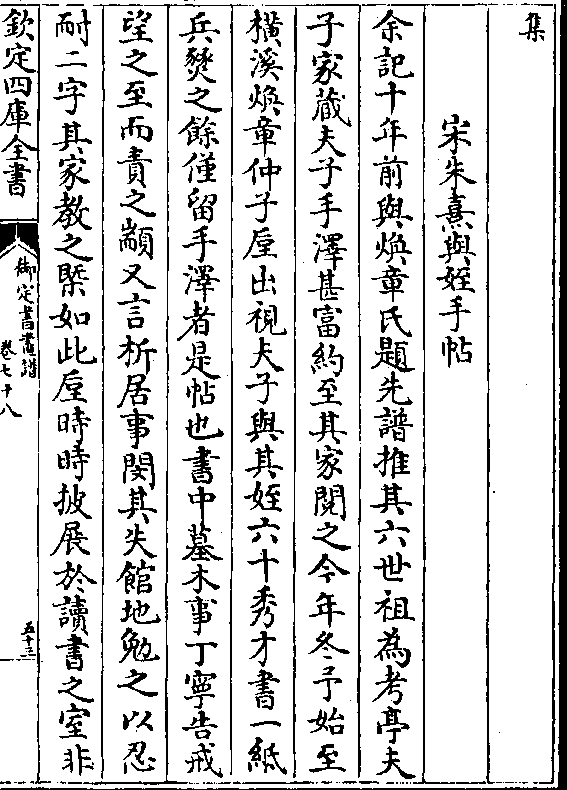 集
宋朱熹與姪手帖
余記十年前與煥章氏題先譜推其六世祖為考亭夫
子家藏夫子手澤甚富約至其家閱之今年冬予始至
横溪煥章仲子垕出視夫子與其姪六十秀才書一紙
兵燹之餘僅留手澤者是帖也書中墓木事丁寧告戒
望之至而責之顓又言析居事閔其失館地勉之以忍
耐二字其家教之槩如此垕時時披展於讀書之室非
欽定四庫全書
御定書畫譜
卷七十八
五十三